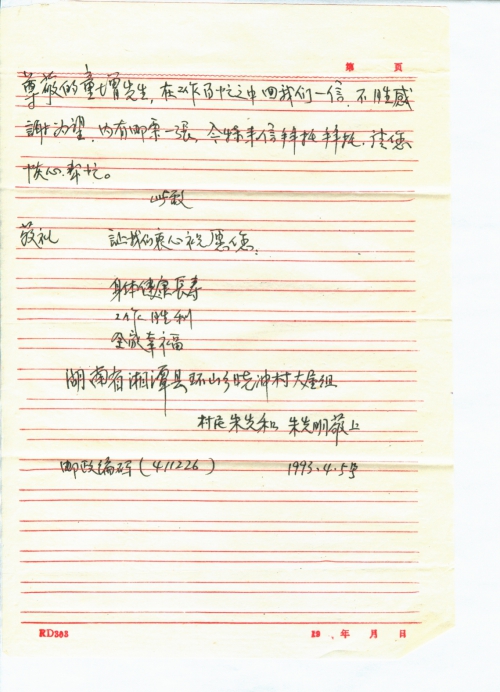 第 页
尊敬的童增先生，在工作百忙之中回我们一信，不胜感
謝为望，内有邮票一张，今特来信拜托拜托，请您
关心帮忙。
此致
敬礼 让我们衷心祝愿您
身体健康长寿
工作胜利
全家幸福
湖南省湘潭县环山乡晓冲村大屋组
村民朱先和 朱先明敬上
邮政编码（411226） 1993.4.5号
RD303 19 、年 月 日